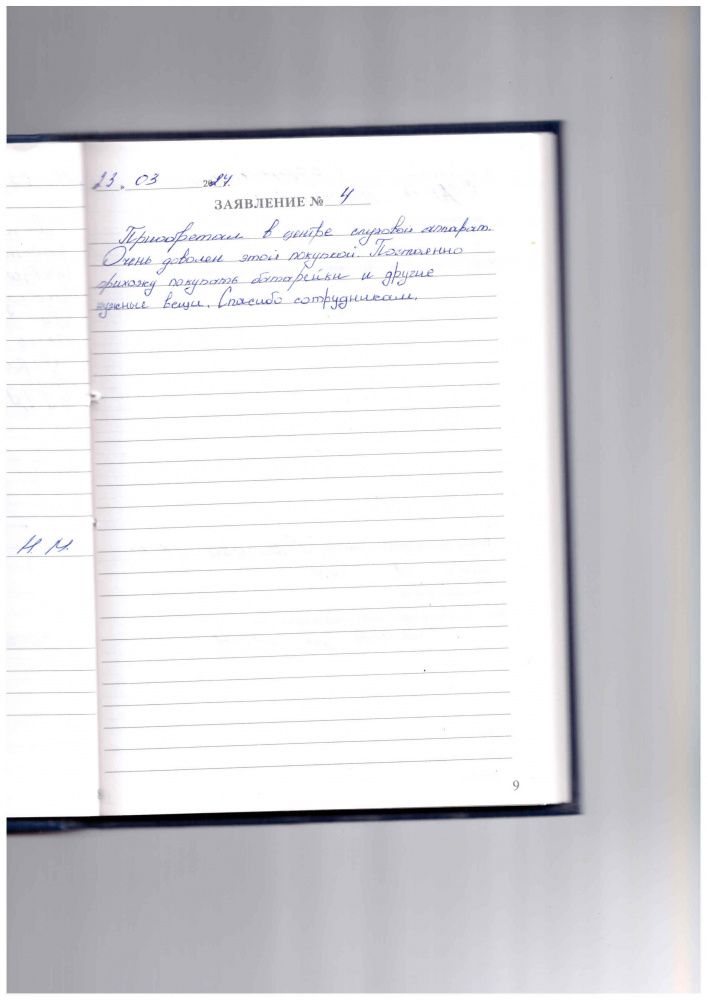 23. 03 2024.
ЗАЯВЛЕНИЕ № 4
Приобретал в центре слуховой аппарат.
Очень доволен этой покупкой. Постоянно
прихожу покупать батарейки и другие
нужные вещи. Спасибо сотрудникам.
Н. М.
9